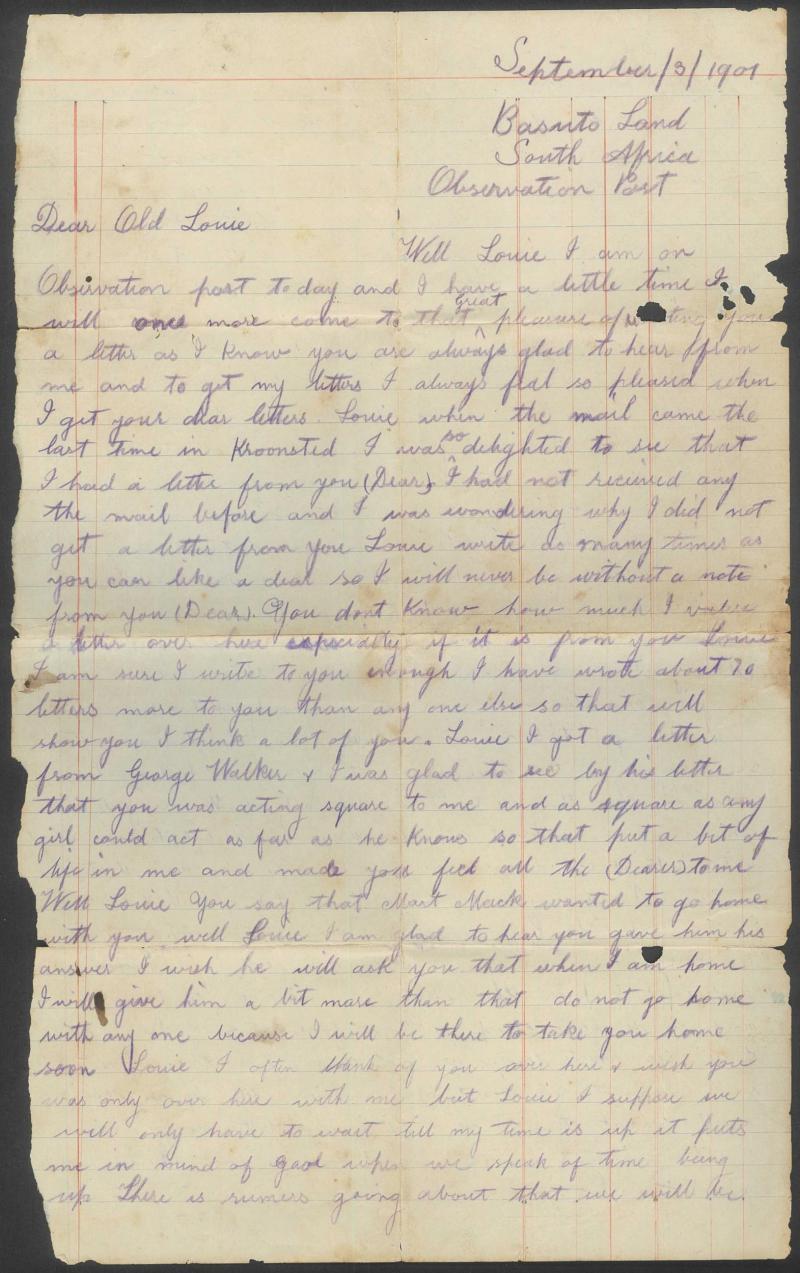 September/3/1901
Basuto Land
South Africa
Observation Post
Dear Old Louie
Well Louie I am on
Observation post today and I have a little time I
will once more come to that great pleasure of writing you
a letter as I know you are always glad to hear from
me and to get my letters I always feel so pleased when
I get your dear letters. Louie when the mail came the
last time in Kroonsted I was so delighted to see that
I had a letter from you (Dear) I had not received any
the mail before and I was wondering why I did not
get a letter from you Louie write as many times as
you can like a dear so I will never be without a note
from you (Dear). You dont know how much I value
a letter over here especially if it is from you Louie
I am sure I write to you enough I have wrote about 20
letters more to you than any one else so that will
show you I think a lot of you. Louie I got a letter
from George Walker & I was glad to see by his letter
that you was acting square to me and as square as any
girl could act as far as he knows so that put a bit of
life in me and made you feel all the (Dearer) to me
Well Louie You say that Mart Mack wanted to go home
with you well Louie I am glad to hear you gave him his
answer I wish he will ask you that when I am home
I will give him a bit more than that do not go home
with any one because I will be there to take you home
soon Louie I often think of you over here & wish you
was only over here with me but Louie I suppose we
will only have to wait till my time is up it puts
me in mind of gaol when we speak of time being
up There is rumers going about that we will be